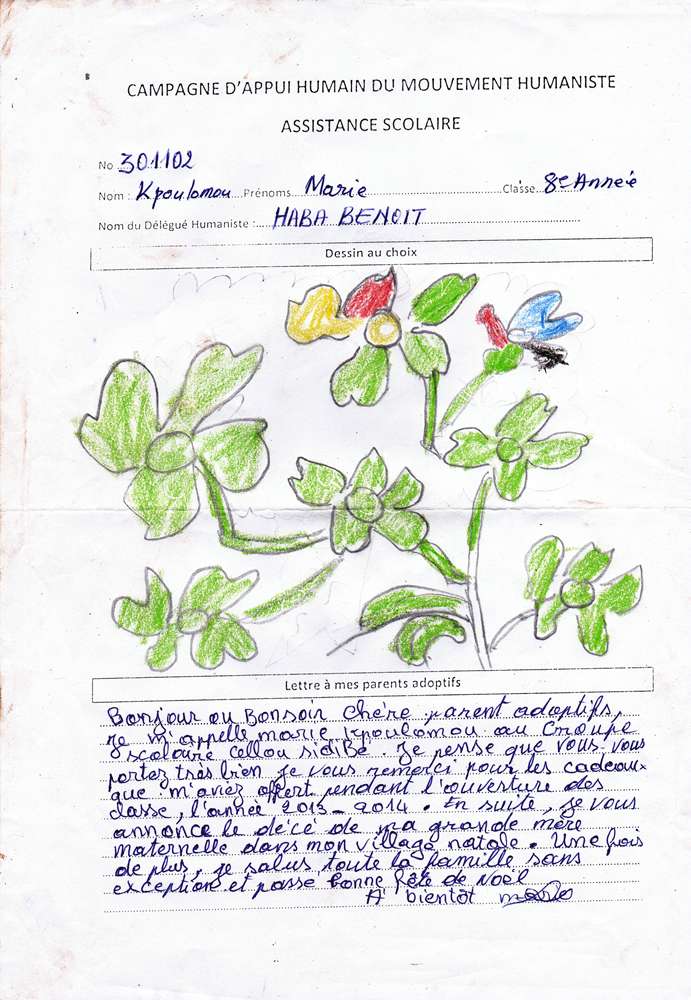 CAMPAGNE D'APPUI HUMAIN DU MOUVEMENT HUMANISTE
ASSISTANCE SCOLAIRE
No 301102
Nom : Kpoulomou Prénoms Marie Classe 8e Année
Nom du Délégué Humaniste : HABA BENOIT
Dessin au choix
Lettre à mes parents adoptifs
Bonjour ou Bonsoir chère parent adoptifs,
je m'appelle marie kpoulomou au Groupe
scolaire Cellou sidibé. Je pense que vous vous
portez très bien je vous remerci pour les cadeaux
que m'aviez offert pendant l'ouverture des
classe, l'année 2013-2014. En suite, je vous
annonce le décé de ma grande mère
maternelle dans mon village natale. Une fois
de plus, je salus toute la famille sans
exception et passe bonne fête de Noël
A bientôt